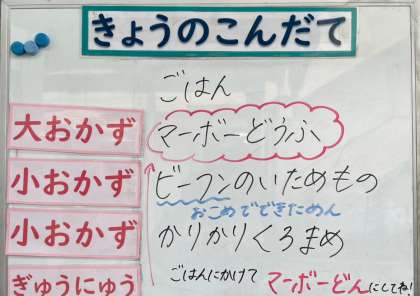 きょうのこんだて
ごはん
大おかず マーボーどうふ
小おかず ビーフンのいためもの
おこめでできためん
小おかず かりかりくろまめ
ぎゅうにゅう ごはんにかけて マーボーどんにしてね!